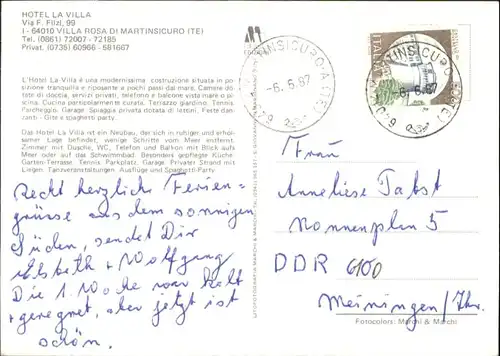 HOTEL LA VILLA
Via F. Filzi, 99
I - 64010 VILLA ROSA DI MARTINSICURO (TE)
Tel. (0861) 72007 - 72185
Privat. (0735) 60966 - 581667
L'Hotel La Villa è una modernissima costruzione situata in po-
sizione tranquilla e riposante a pochi passi dal mare. Camere do-
tate di doccia, servizi privati, telefono e balcone vista mare o pi-
scina. Cucina particolarmente curata. Terrazzo giardino. Tennis.
Parcheggio. Garage. Spiaggia privata dotata di lettini. Feste dan-
zanti - Gite e spaghetti party.
Das Hotel La Villa ist ein Neubau, der sich in ruhiger und erhol-
samer Lage befindet, wenige Schritte vom Meer entfernt.
Zimmer mit Dusche, WC, Telefon und Balkon mit Blick aufs
Meer oder auf das Schwimmbad. Besonders gepflegte Küche.
Garten-Terrasse. Tennis. Parkplatz. Garage. Privater Strand mit
Liegen. Tanzveranstaltungen. Ausflüge und Spaghetti-Party.
Recht herzliche Ferien-
grüsse aus dem sonnigen
Süden, sendet Dir
Elsbeth + Wolfgang
Die 1. Woche war kalt
+ geregnet, aber jetzt ist
schön.
MARTINSICURO
-6.6.87
ITALIA
MARTINSICURO
-6.6.87
Frau
Anneliese Tabst
Nonnenplan 5
DDR 6100
Meiningen/Thr.
Fotocolors: Marchi & Marchi